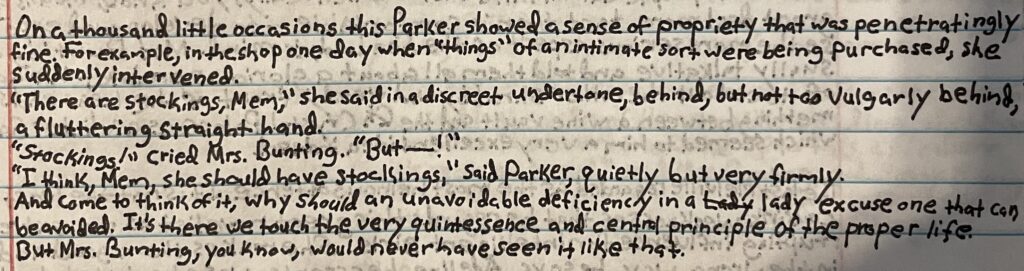 On a thousand little occasions this Parker showed a sense of propriety that was penetratingly
fine. For example, in the shop one day when "things" of an intimate sort were being purchased, she
suddenly intervened.
"There are stockings, Mem," she said in a discreet undertone, behind, but not too vulgarly behind,
a fluttering straight hand.
"Stockings!" cried Mrs. Bunting. "But—!"
"I think, Mem, she should have stockings," said Parker, quietly but very firmly.
And come to think of it, why should an unavoidable deficiency in a lady excuse one that can
be avoided. It's there we touch the very quintessence and central principle of the proper life.
But Mrs. Bunting, you know, would never have seen it like that.